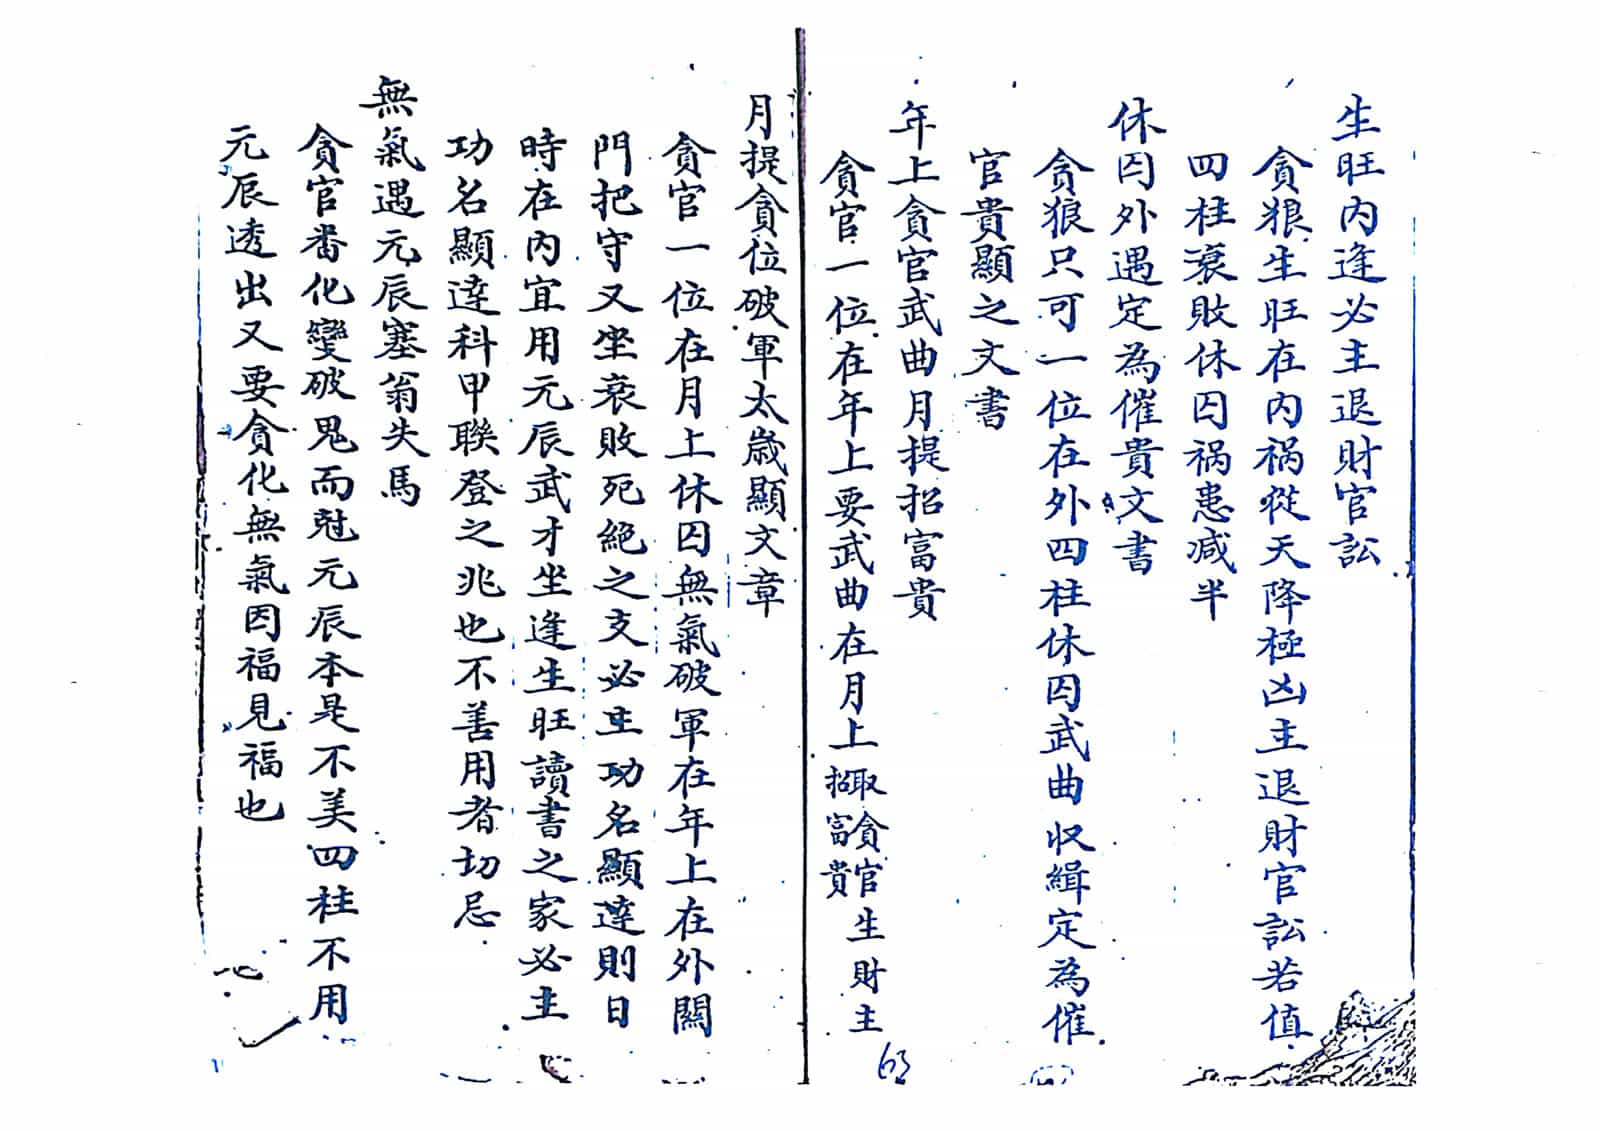 生旺内逢必主退財官訟
貪狼生旺在内禍從天降極凶主退財官訟若值
四柱衰敗休囚禍患减半
休囚外遇定為催貴文書
貪狼只可一位在外四柱休囚武曲收緝定為催
官貴顯之文書
年上貪官武曲月提招富貴
貪官一位在年上要武曲在月上取貪官生財主招富貴
月提貪位破軍太歲顯文章
貪官一位在月上休囚無氣破軍在年上在外關
門把守又坐衰敗死絕之支必主功名顯達則日
時在内宜用元辰武才坐逢生旺讀書之家必主
功名顯達科甲聯登之兆也不善用者切忌
無氣遇元辰塞翁失馬
貪官畨化變破鬼而尅元辰本是不美四柱不用
元辰透出又要貪化無氣因福見福也